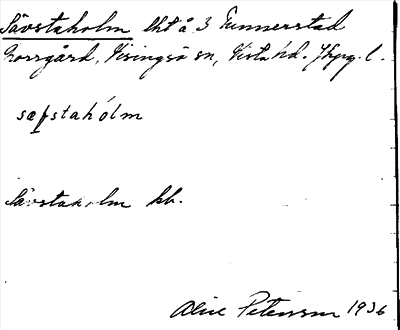 Sävstaholm lht å 3 Tunnerstad
Norrgård, Visingsö sn, Vista hd. Jkpg. l.
sæfstahólm
Sävstaholm kb.
Alice Petersson 1936